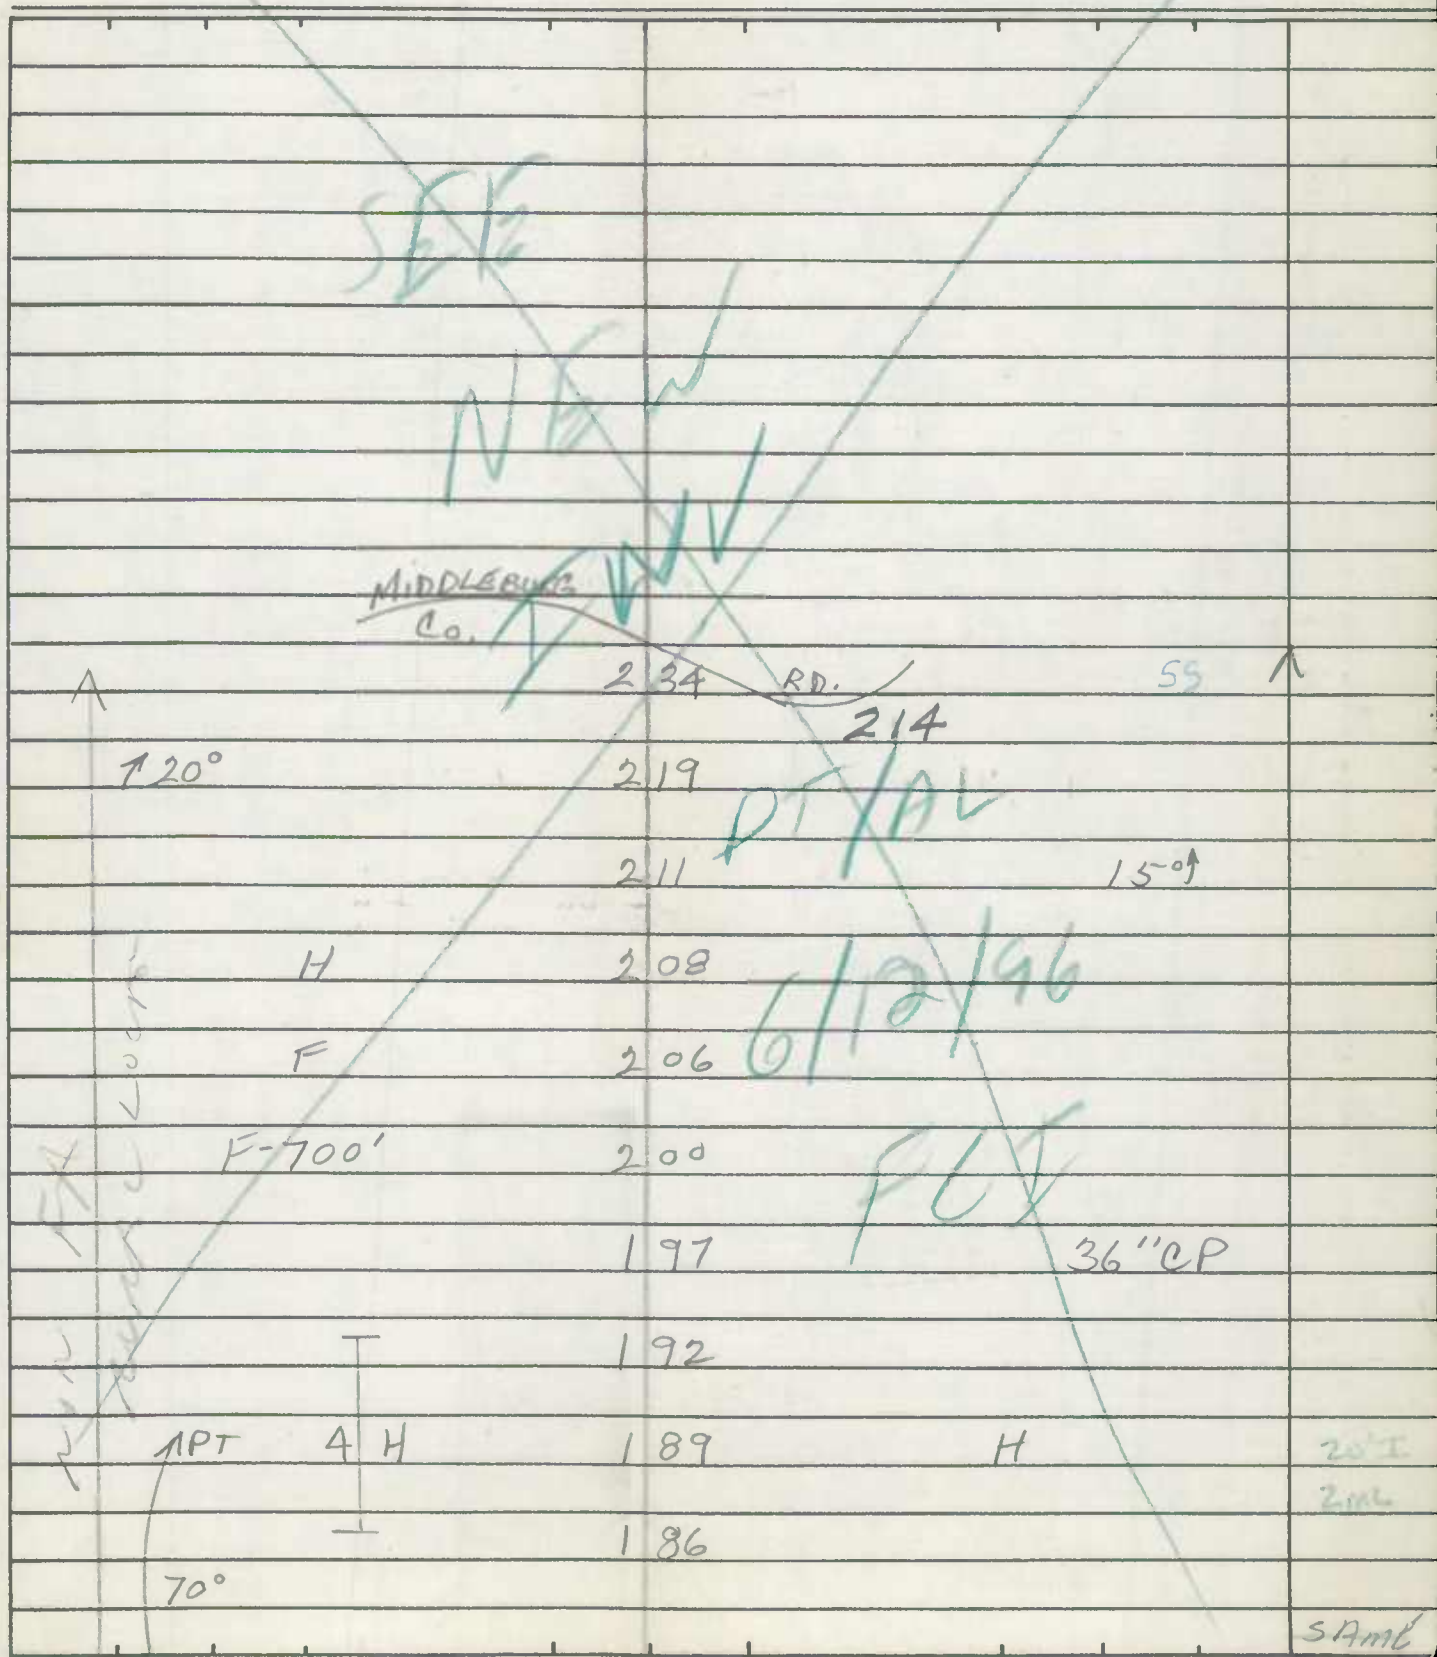 SEE
NEW
INV
MIDDLEBURG
CO.
2 34 RD. SS
214
20° 2 19
DT/AL
2 11 15°
H 2 08
6/12/96
F 2 06
F-700' 2 00
FCI
1 97 36"CP
1 92
PT 4 H 1 89 H 20'I
1 86
70°
SAME